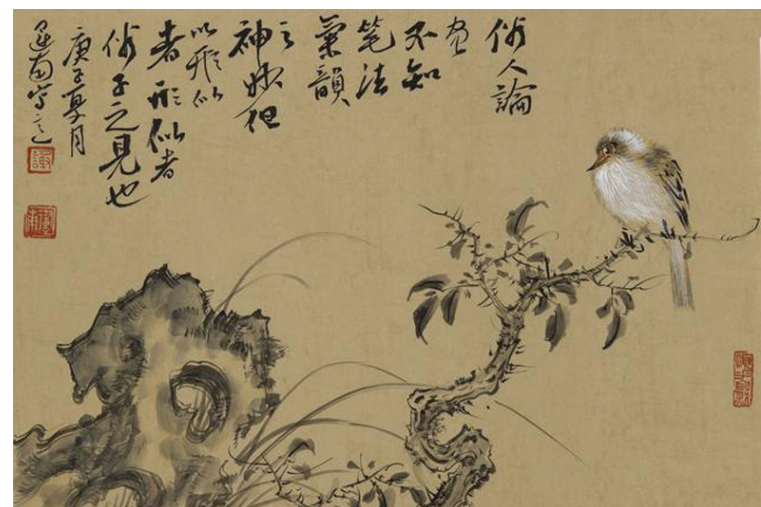 俗人論
画
不知
笔法
氣韻
之
神妙但
以形似
者形似者
俗子之見也
庚子夏月